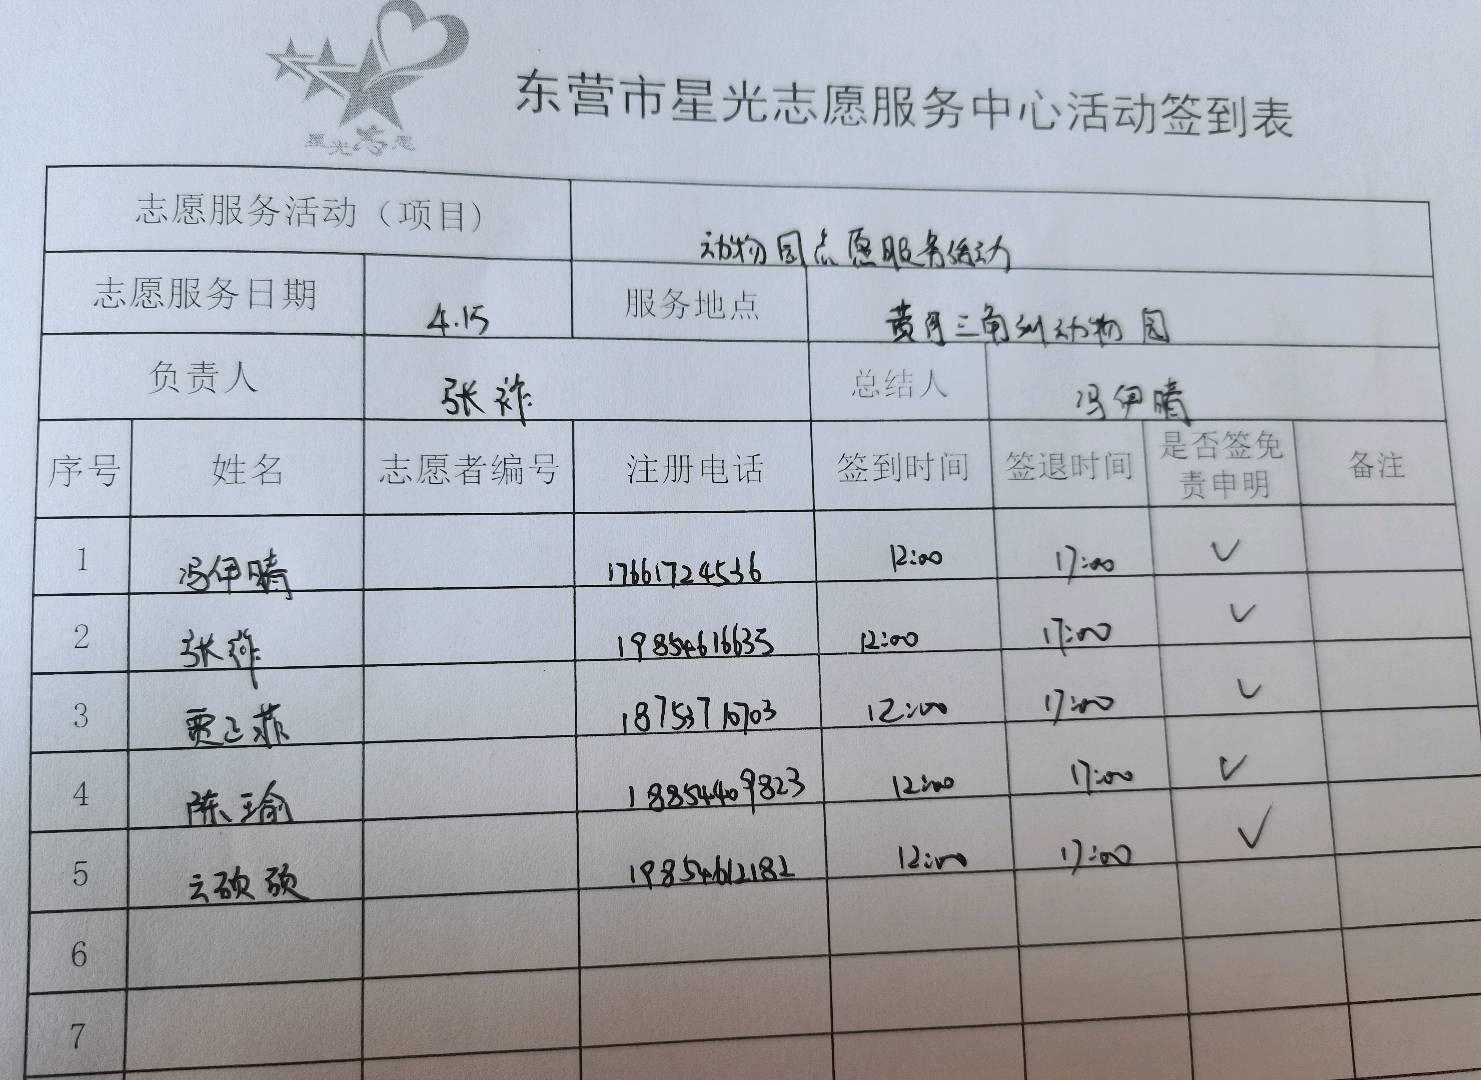 星光志愿
东营市星光志愿服务中心活动签到表
志愿服务活动（项目） 动物园志愿服务活动
志愿服务日期 4.15 服务地点 黄河三角洲动物园
负责人 张祚 总结人 冯伊晴
序号 姓名 志愿者编号 注册电话 签到时间 签退时间 是否签免责申明 备注
1 冯伊晴 17661724536 12:00 17:00 ✓
2 张祚 19854616635 12:00 17:00 ✓
3 贾正菲 18753710703 12:00 17:00 ✓
4 陈瑜 18854409823 12:00 17:00 ✓
5 云硕硕 19854612182 12:00 17:00 ✓
6
7